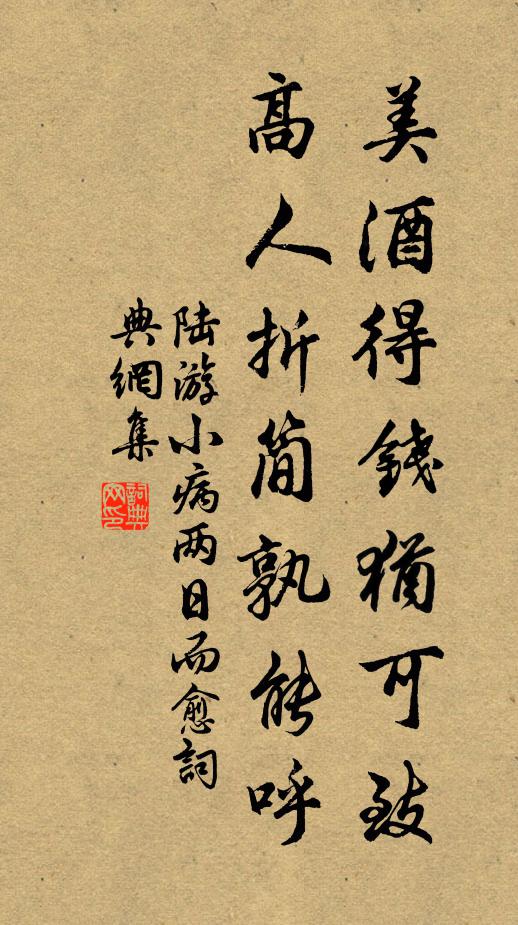 美酒得錢猶可致
高人折简孰能呼
陆游小病两日而愈詞
典網集
詞典
网印